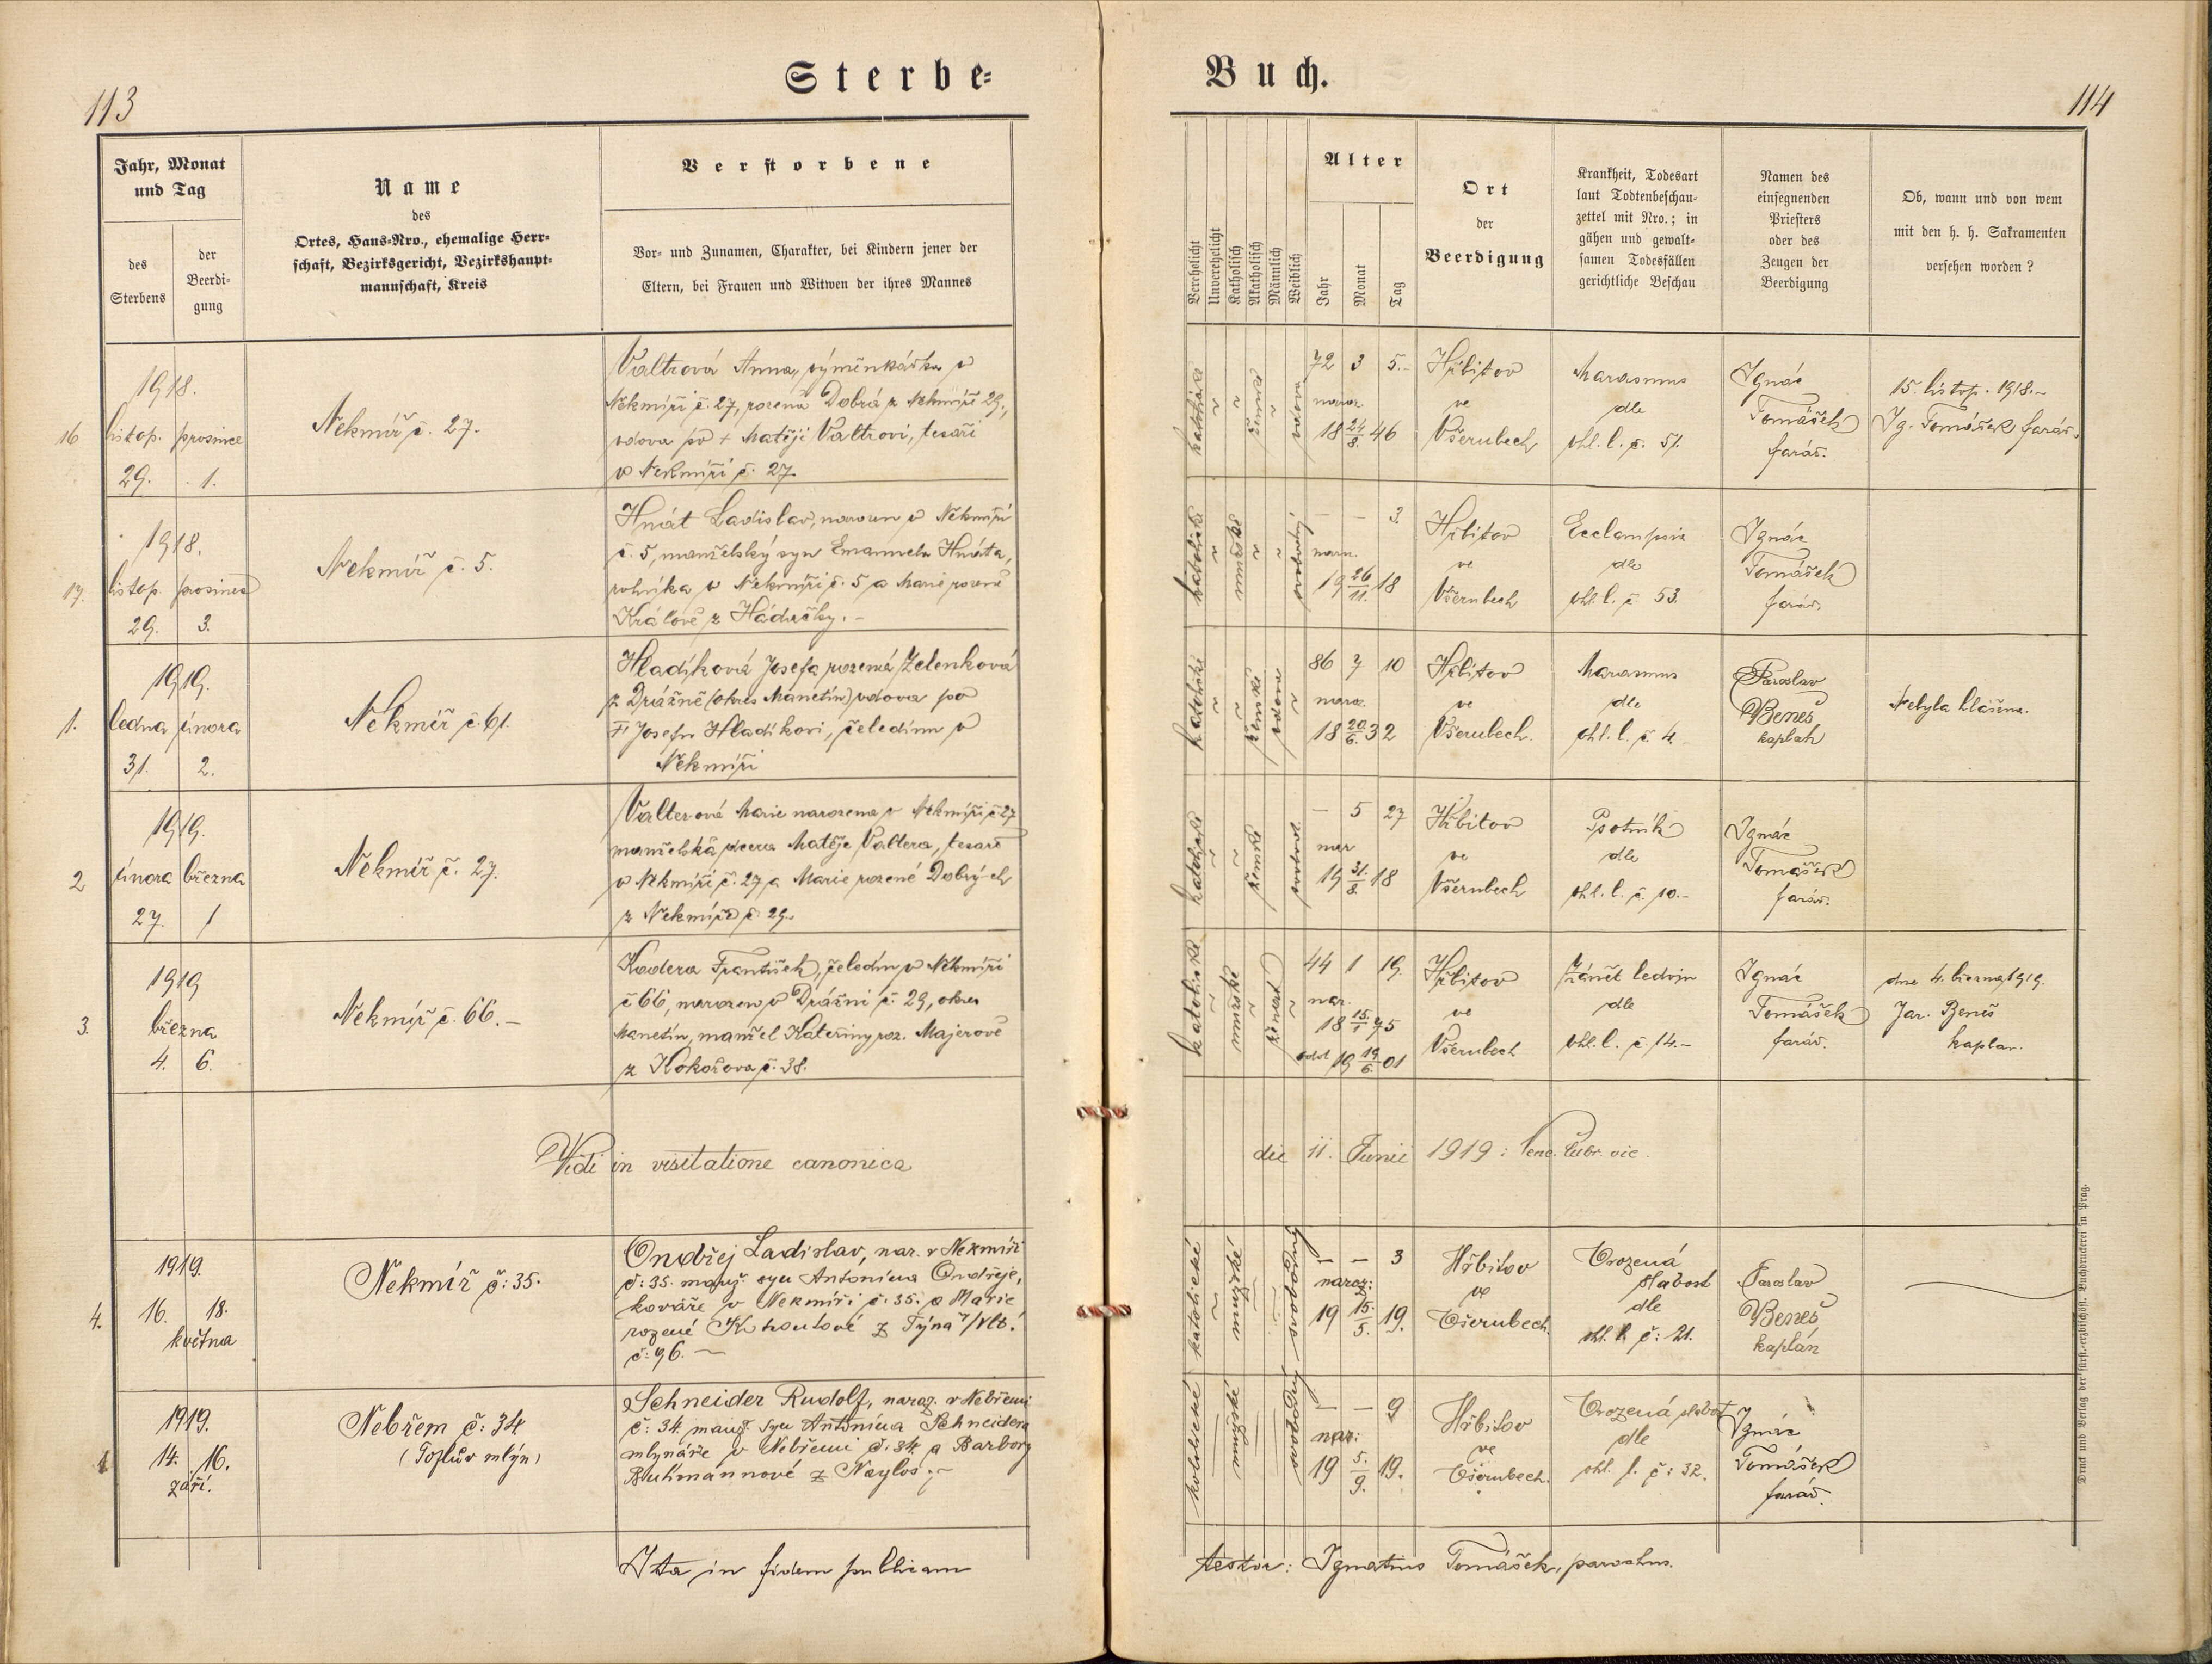 113
Sterbe=
Jahr, Monat
und Tag
des
Sterbens
der
Beerdi-
gung
Name
des
Ortes, Haus-Nro., ehemalige Herr-
schaft, Bezirksgericht, Bezirkshaupt-
mannschaft, Kreis
Verstorbene
Vor- und Zunamen, Charakter, bei Kindern jener der
Eltern, bei Frauen und Witwen der ihres Mannes
16
1918.
listop. prosince
29. 1.
Nekmíř č. 27.
Valtrová Anna, výměnkářka v
Nekmíři č. 27, rozená Dobrá z Nekmíře 29.,
vdova po + Matěji Valtrovi, tesaři
v Nekmíři č. 27.
17.
1918.
listop. prosince
29. 3.
Nekmíř č. 5.
Hnát Ladislav, narozen v Nekmíři
č. 5, manželský syn Emanuela Hnáta,
rolníka v Nekmíři č. 5 a Marie rozené
Králové z Hádačky.-
1.
1919.
ledna února
31. 2.
Nekmíř č. 61.
Hladíková Josefa rozená Zelenková
z Drážně (okres Manetín) vdova po
+ Josefu Hladíkovi, čeledínu v
Nekmíři
2
1919.
února března
27. 1
Nekmíř č. 27.
Valterová Marie narozena v Nekmíři č 27
manželská dcera Matěje Valtera, tesaře
v Nekmíři č. 27 a Marie rozené Dobrých
z Nekmíře č. 29.
3.
1919
března
4. 6.
Nekmíř č. 66.-
Kadera František, čeledín v Nekmíři
č 66, narozen v Drážni č. 29, okres
Manetín, manžel Kateřiny roz. Majerové
z Kokořova č. 38.
Vidi in visitatione canonica
4.
1919.
16. 18.
května
Nekmíř č: 35.
Ondřej Ladislav, nar. v Nekmíři
č: 35. manž. syn Antonína Ondřeje,
kováře v Nekmíři č: 35. a Marie
rozené Kohoutové z Týna n/Vlt.
č: 96. -
1
1919.
14. 16.
září.
Nebřem č: 34
mlýn)
Schneider Rudolf, naroz. v Nebřemi
č: 34. manž. syn Antonína Schneidera
mlynáře v Nebřemi č. 34. a Barbory
z
Ita in fidem publicam
Buch.
114
Verehelicht
Unverehelicht
Katholisch
Akatholisch
Männlich
Weiblich
Alter
Jahr
Monat
Tag
Ort
der
Beerdigung
Krankheit, Todesart
laut Todtenbeschau-
zettel mit Nro.; in
gähen und gewalt-
samen Todesfällen
gerichtliche Beschau
Namen des
einsegnenden
Priesters
oder des
Zeugen der
Beerdigung
Ob, wann und von wem
mit den h. h. Sakramenten
versehen worden?
katolické
ženské
vdova
72 3 5.-
naroz.
18 24/8. 46
Hřbitov
ve
Všerubech
Marasmus
dle
ohl. l. č. 51.
Ignác
Tomášek
farář.
15. listop. 1918.-
Ig. Tomášek farář.
katolické
mužské
svobodný
- - 3.
naro.
19 26/11. 18
Hřbitov
ve
Všerubech
Ecclampsia
dle
ohl. l. č. 53.
Ignác
Tomášek
farář.
katolické
ženské
vdova
86 7 10
naroz.
18 20/6. 32
Hřbitov
ve
Všerubech.
Marasmus
dle
ohl. l. č. 4.-
Jaroslav
Beneš
kaplan
Nebyla hlášena.
katolické
ženské
svobod.
- 5 27
nar
19 31./8. 18
Hřbitov
ve
Všerubech
Psotník
dle
ohl. l. č. 10.-
Ignác
Tomášek
farář.
katolické
mužské
ženat
44 1 19.
nar.
18 15./1 75
odd. 19 19/6. 01
Hřbitov
ve
Všerubech
Zánět ledvin
dle
ohl. l. č 14.-
Ignác
Tomášek
farář.
dne 4. března 1919.
Jar. Beneš
kaplan.
die 11. Junii 1919: vic.
katolické
mužské
svobodný
- - 3
naroz:
19 15./5. 19.
Hřbitov
ve
Všerubech.
Vrozená
slabost
dle
ohl. l. č: 21.
Jaroslav
Beneš
kaplán
katolické
mužské
svobodný
- - 9
nar:
19 5./9. 19.
Hřbitov
ve
Všerubech.
Vrozená slabost
dle
ohl. l. č: 32.
Ignác
Tomášek
farář.
testor: Ignatius Tomášek, parochus.
Druck und Verlag der fürst.-erzbischöfl. Buchdruckerei in Prag.